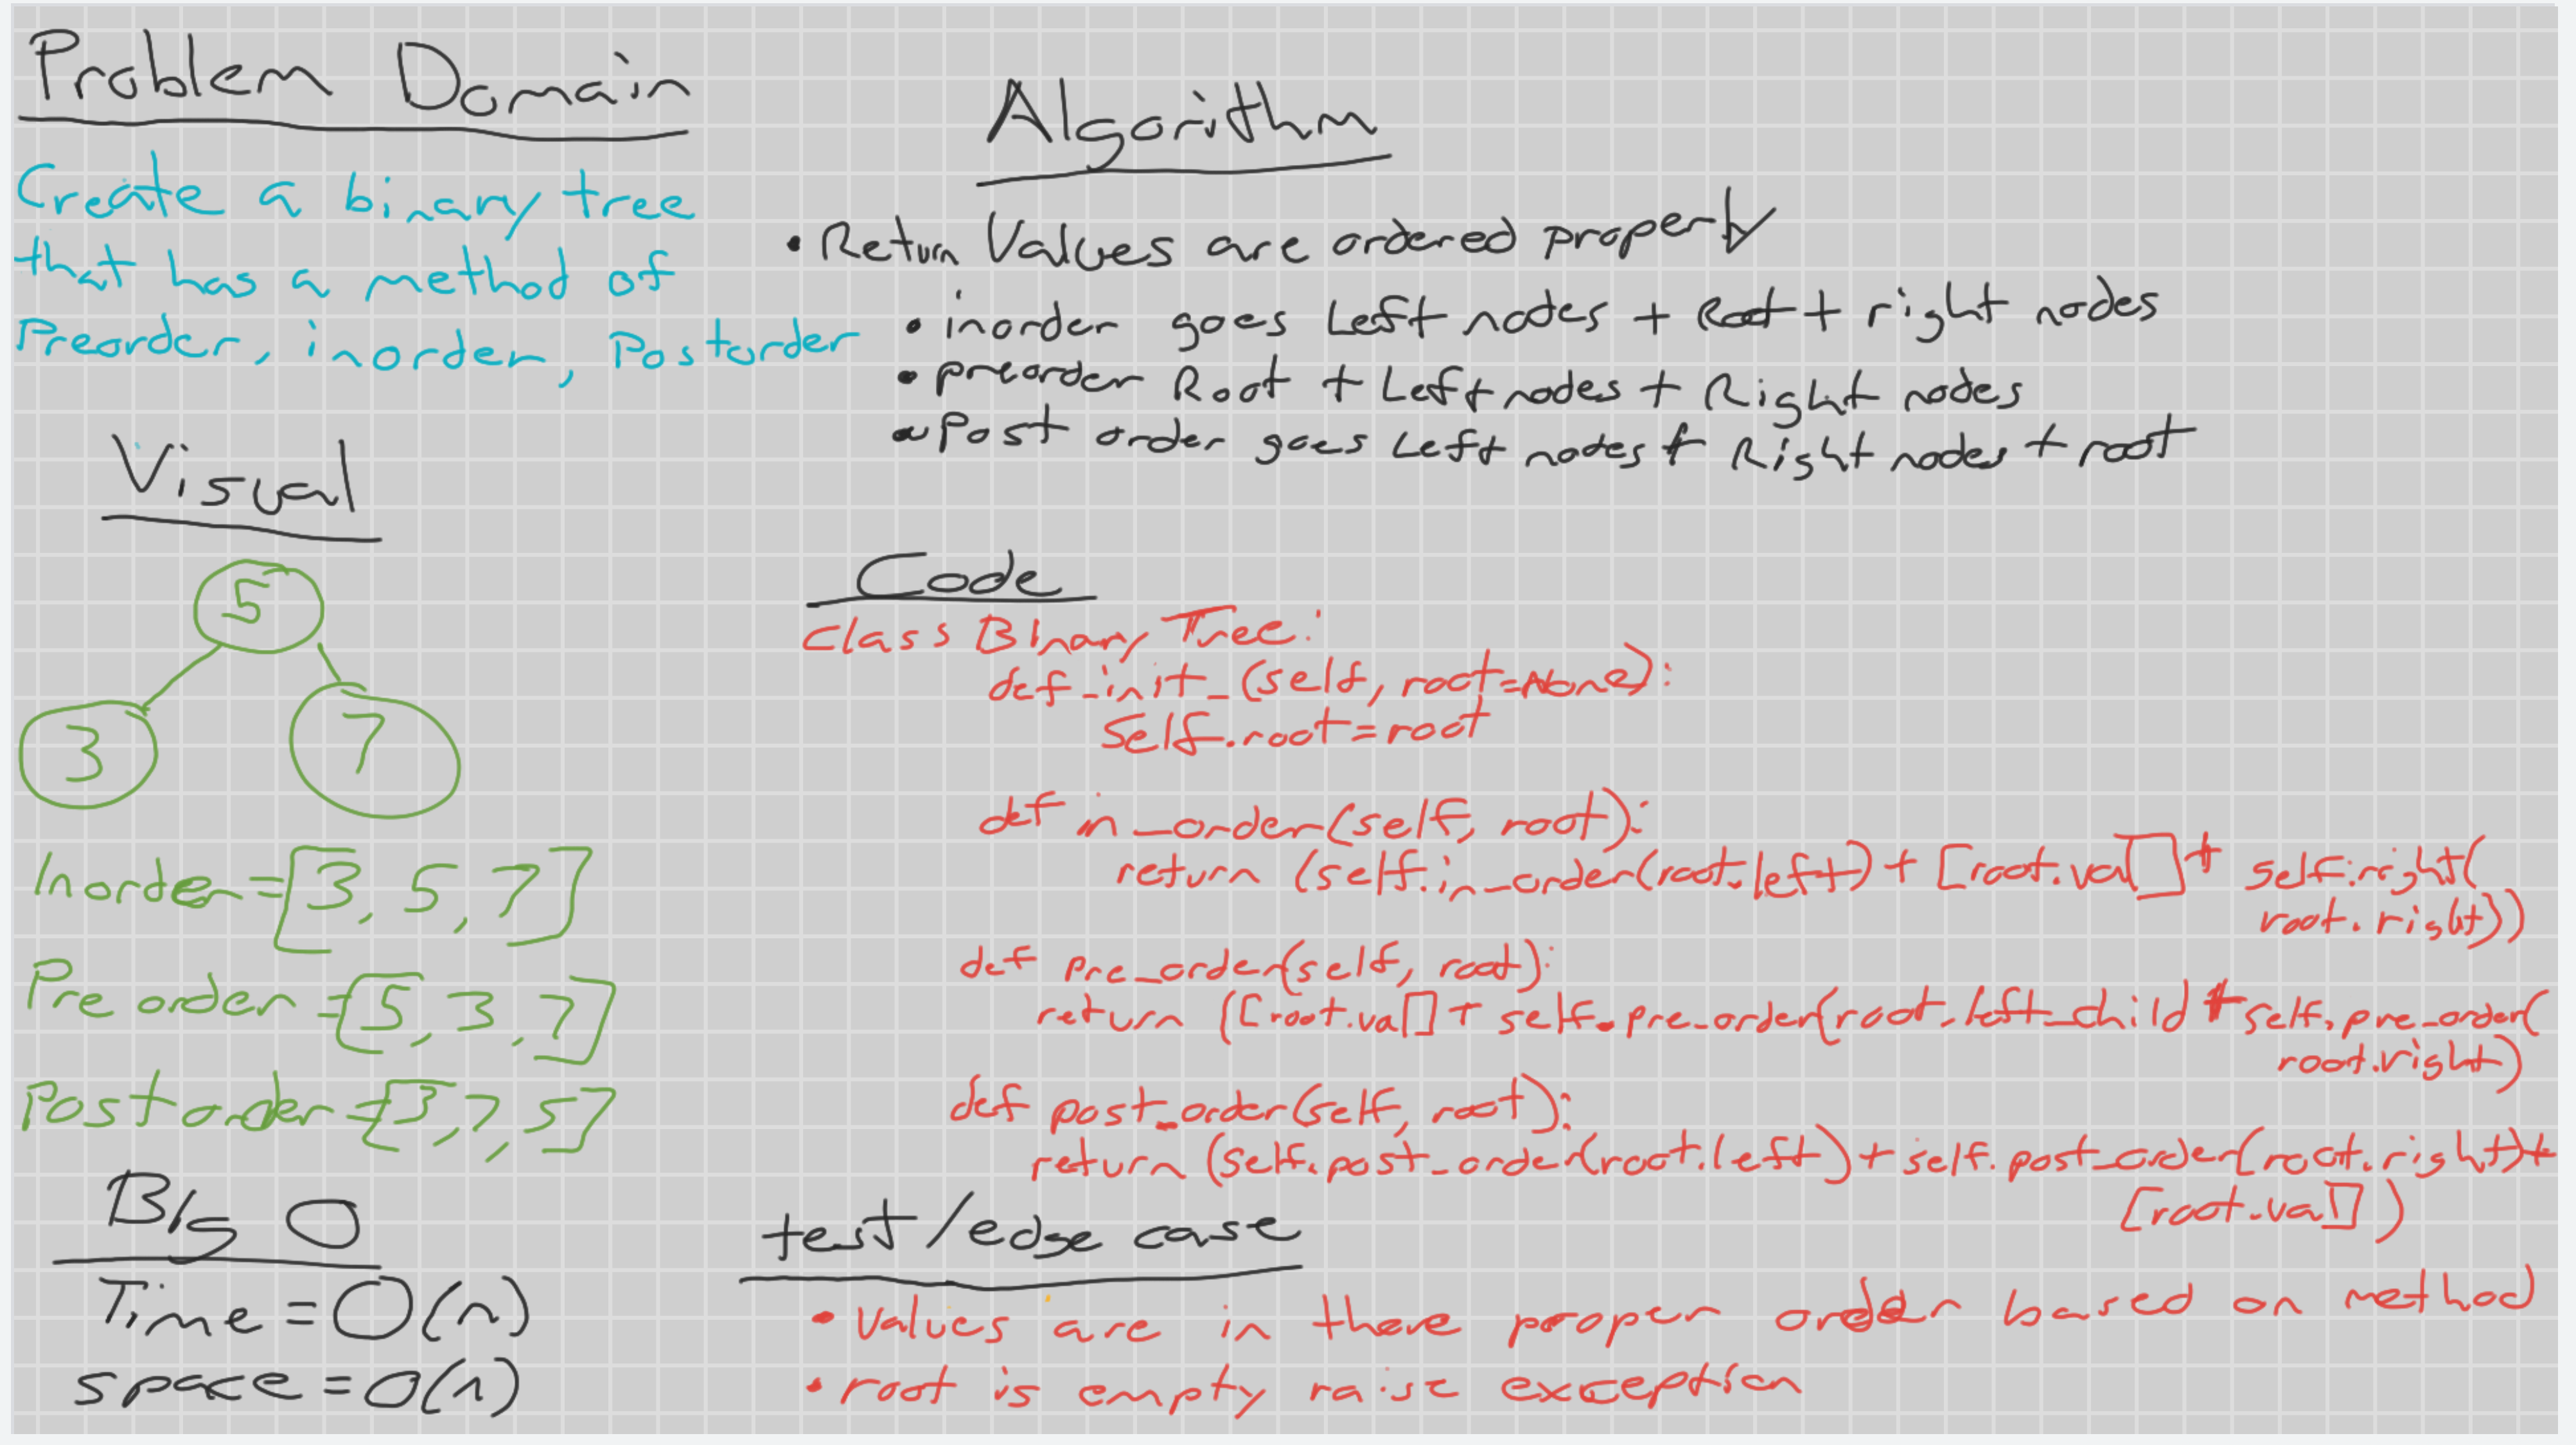 Problem Domain
Create a binary tree
that has a method of
Preorder, inorder, Postorder
Visual
5
3
7
Inorder=[3, 5, 7]
Preorder=[5, 3, 7]
Postorder=[3, 7, 5]
Big O
Time = O(n)
space = O(n)
Algorithm
• Return Values are ordered properly
• inorder goes Left nodes + Root + right nodes
• preorder Root + Left nodes + Right nodes
• Post order goes Left nodes + Right nodes + root
Code
Class Binary Tree:
def _init_ (self, root=None):
self.root = root
def in_order(self, root):
return (self.in_order(root.left) + [root.val] + self.right(
root.right))
def pre_order(self, root):
return ([root.val] + self.pre_order(root.left_child + self.pre_order(
root.right)
def post_order(self, root):
return (self.post_order(root.left) + self.post_order(root.right) +
[root.val])
test/edge case
• Values are in there proper order based on method
• root is empty raise exception